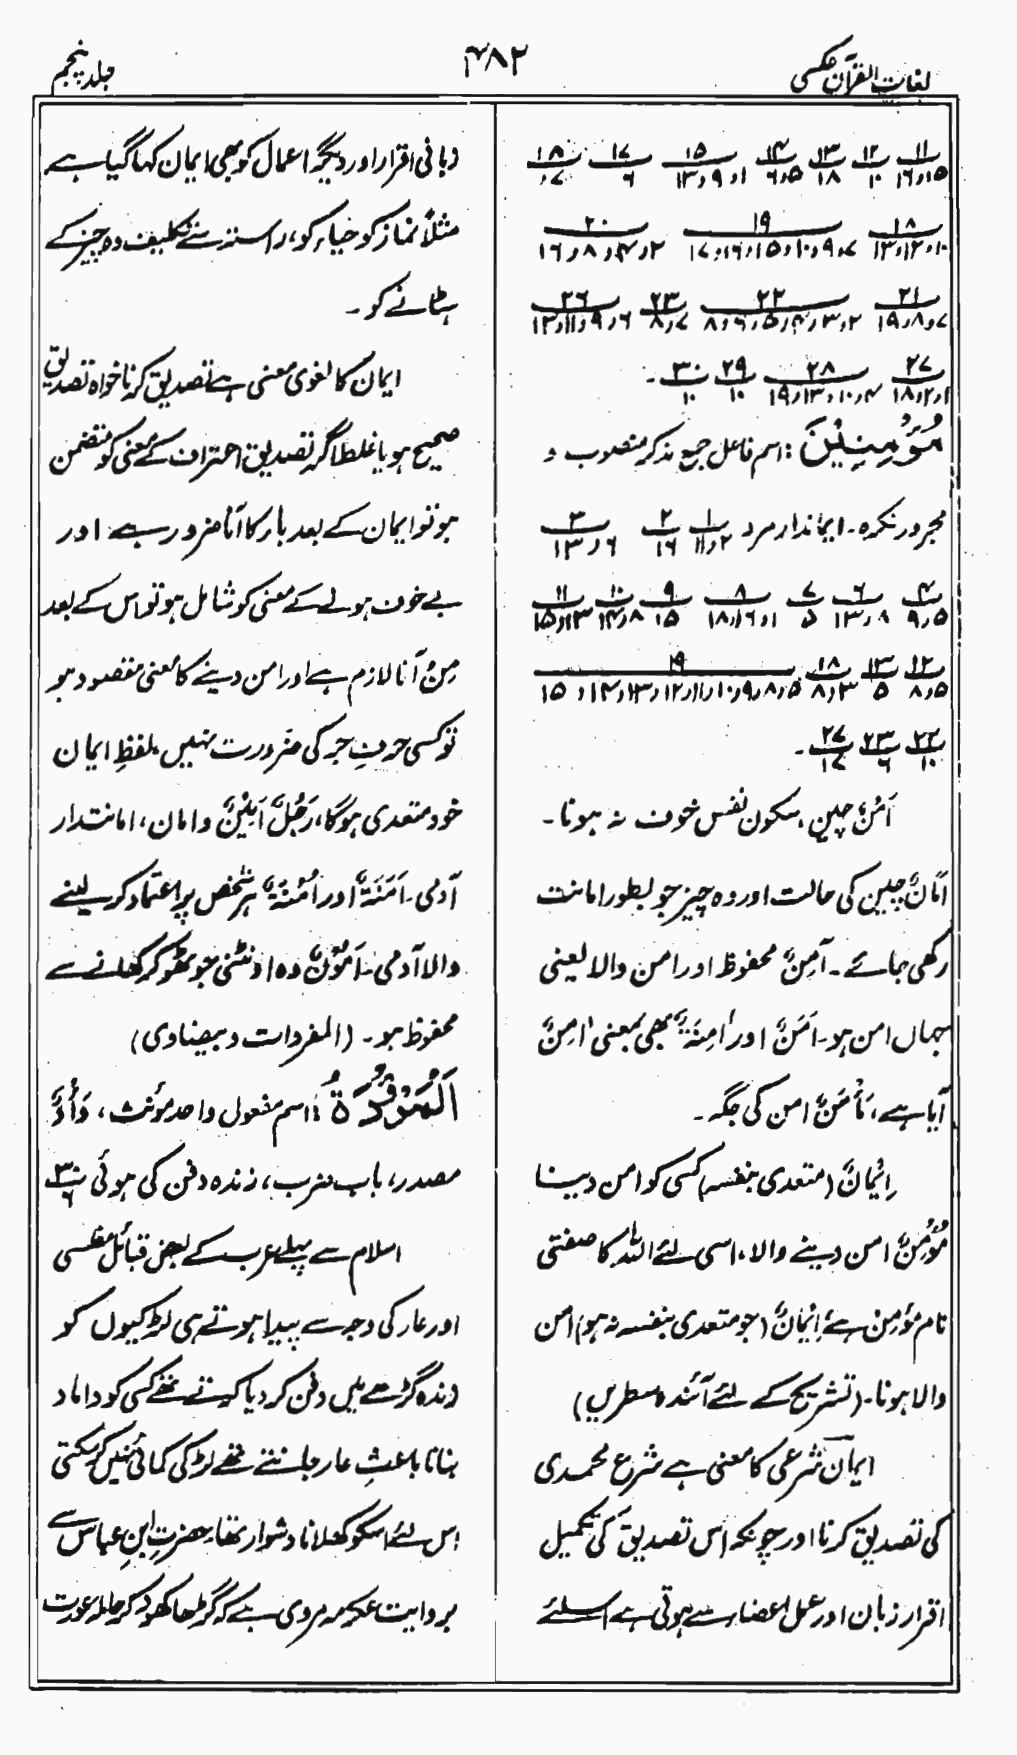 لغات القرآن عکسی
۴۸۲
جلد پنجم
۱۱/۱۵و۱۶ ۱۲/۱۰ ۱۳/۱۸ ۱۴/۵و۶ ۱۵/۱و۹و۱۳ ۱۷/۶ ۱۸/۷و
۱۸/۱۰و۱۲و۱۳ ۱۹/۷و۹و۱۰و۱۵و۱۶و۱۷ ۲۰/۲و۴و۸و۱۶
۲۱/۷و۸و۱۹ ۲۲/۲و۳و۴و۵و۶و۸ ۲۳/۷و۸ ۲۶/۶و۹و۱۱و۱۲
۲۷/۱و۲و۱۸ ۲۸/۴و۱۰و۱۳و۱۹ ۲۹/۱۰ ۳۰/۱۰ ۔
مُؤْمِنِیْنَ : اسم فاعل جمع مذکر منصوب و
مجرور نکرہ۔ ایماندار مرد ۱/۲و۱۱ ۲/۱۶ ۳/۶و۱۳
۴/۵و۹ ۶/۸و۱۳ ۷/۵ ۸/۱و۱۶و۱۸ ۹/۱۵ ۱۰/۸و۱۴ ۱۱/۱۳و۱۵
۱۲/۵و۸ ۱۳/۵ ۱۸/۳و۸ ۱۹/۵و۸و۹و۱۰و۱۱و۱۲و۱۳و۱۴و ۱۵
۲۲/۱۰ ۲۳/۶ ۲۷/۱۷ ۔
اَمْنٌ چین، سکون نفس خوف نہ ہونا۔
اَمَانٌ چین کی حالت اور وہ چیز جو بطور امانت
رکھی جائے۔ آمِنٌ محفوظ اور امن والا یعنی
جہاں امن ہو۔ اَمَنٌ اور اَمِنَۃٌ بھی بمعنی اٰمِنٌ
آیا ہے، مَأْمَنٌ امن کی جگہ۔
اِیْمَانٌ (متعدی بنفسہ) کسی کو امن دینا
مُؤْمِنٌ امن دینے والا، اسی لئے اللہ کا صفتی
نام مؤمِن ہے اِیْمَانٌ (جو متعدی بنفسہ نہ ہو) امن
والا ہونا۔ (تشریح کے لئے آئندہ سطریں)
ایمان شرعی کا معنی ہے شرع محمدی
کی تصدیق کرنا اور چونکہ اس تصدیق کی تکمیل
اقرار زبان اور عمل اعضاء سے ہوتی ہے اسلئے
زبانی اقرار اور دیگر اعمال کو بھی ایمان کہا گیا ہے
مثلاً نماز کو حیاء کو، راستہ سے تکلیف دہ چیز کے
ہٹانے کو۔
ایمان کا لغوی معنی ہے تصدیق کرنا خواہ تصدیق
صحیح ہو یا غلط اگر تصدیق اعتراف کے معنی کو متضمن
ہو تو ایمان کے بعد بار کا آنا ضرور ہے اور
بے خوف ہونے کے معنی کو شامل ہو تو اس کے بعد
مِنْ آنا لازم ہے اور امن دینے کا معنی مقصود ہو
تو کسی حرفِ جر کی ضرورت نہیں لفظِ ایمان
خود متعدی ہوگا، رَجُلٌ اَمِیْنٌ و امان، امانتدار
آدمی۔ اَمَنَۃٌ اور اُمْنَۃٌ ہر شخص پر اعتماد کر لینے
والا آدمی۔ اَمُوْنٌ وہ اونٹنی جو ٹھوکر کھانے سے
محفوظ ہو۔ (المفردات و بیضاوی)
اَلْمَوْءُدَۃُ : اسم مفعول واحد مؤنث، وَأْدٌ
مصدر، باب ضرب، زندہ دفن کی ہوئی ۳۰/۶
اسلام سے پہلے عرب کے بعض قبائل مفلسی
اور عار کی وجہ سے پیدا ہوتے ہی لڑکیوں کو
زندہ گڑھے میں دفن کر دیا کرتے تھے کسی کو داماد
بنانا باعثِ عار جانتے تھے لڑکی کمائی نہیں کر سکتی
اس لئے اسکو کھلانا دشوار تھا۔ حضرت ابنِ عباس سے
بروایت عکرمہ مروی ہے کہ گڑھا کھود کر حاملہ عورت